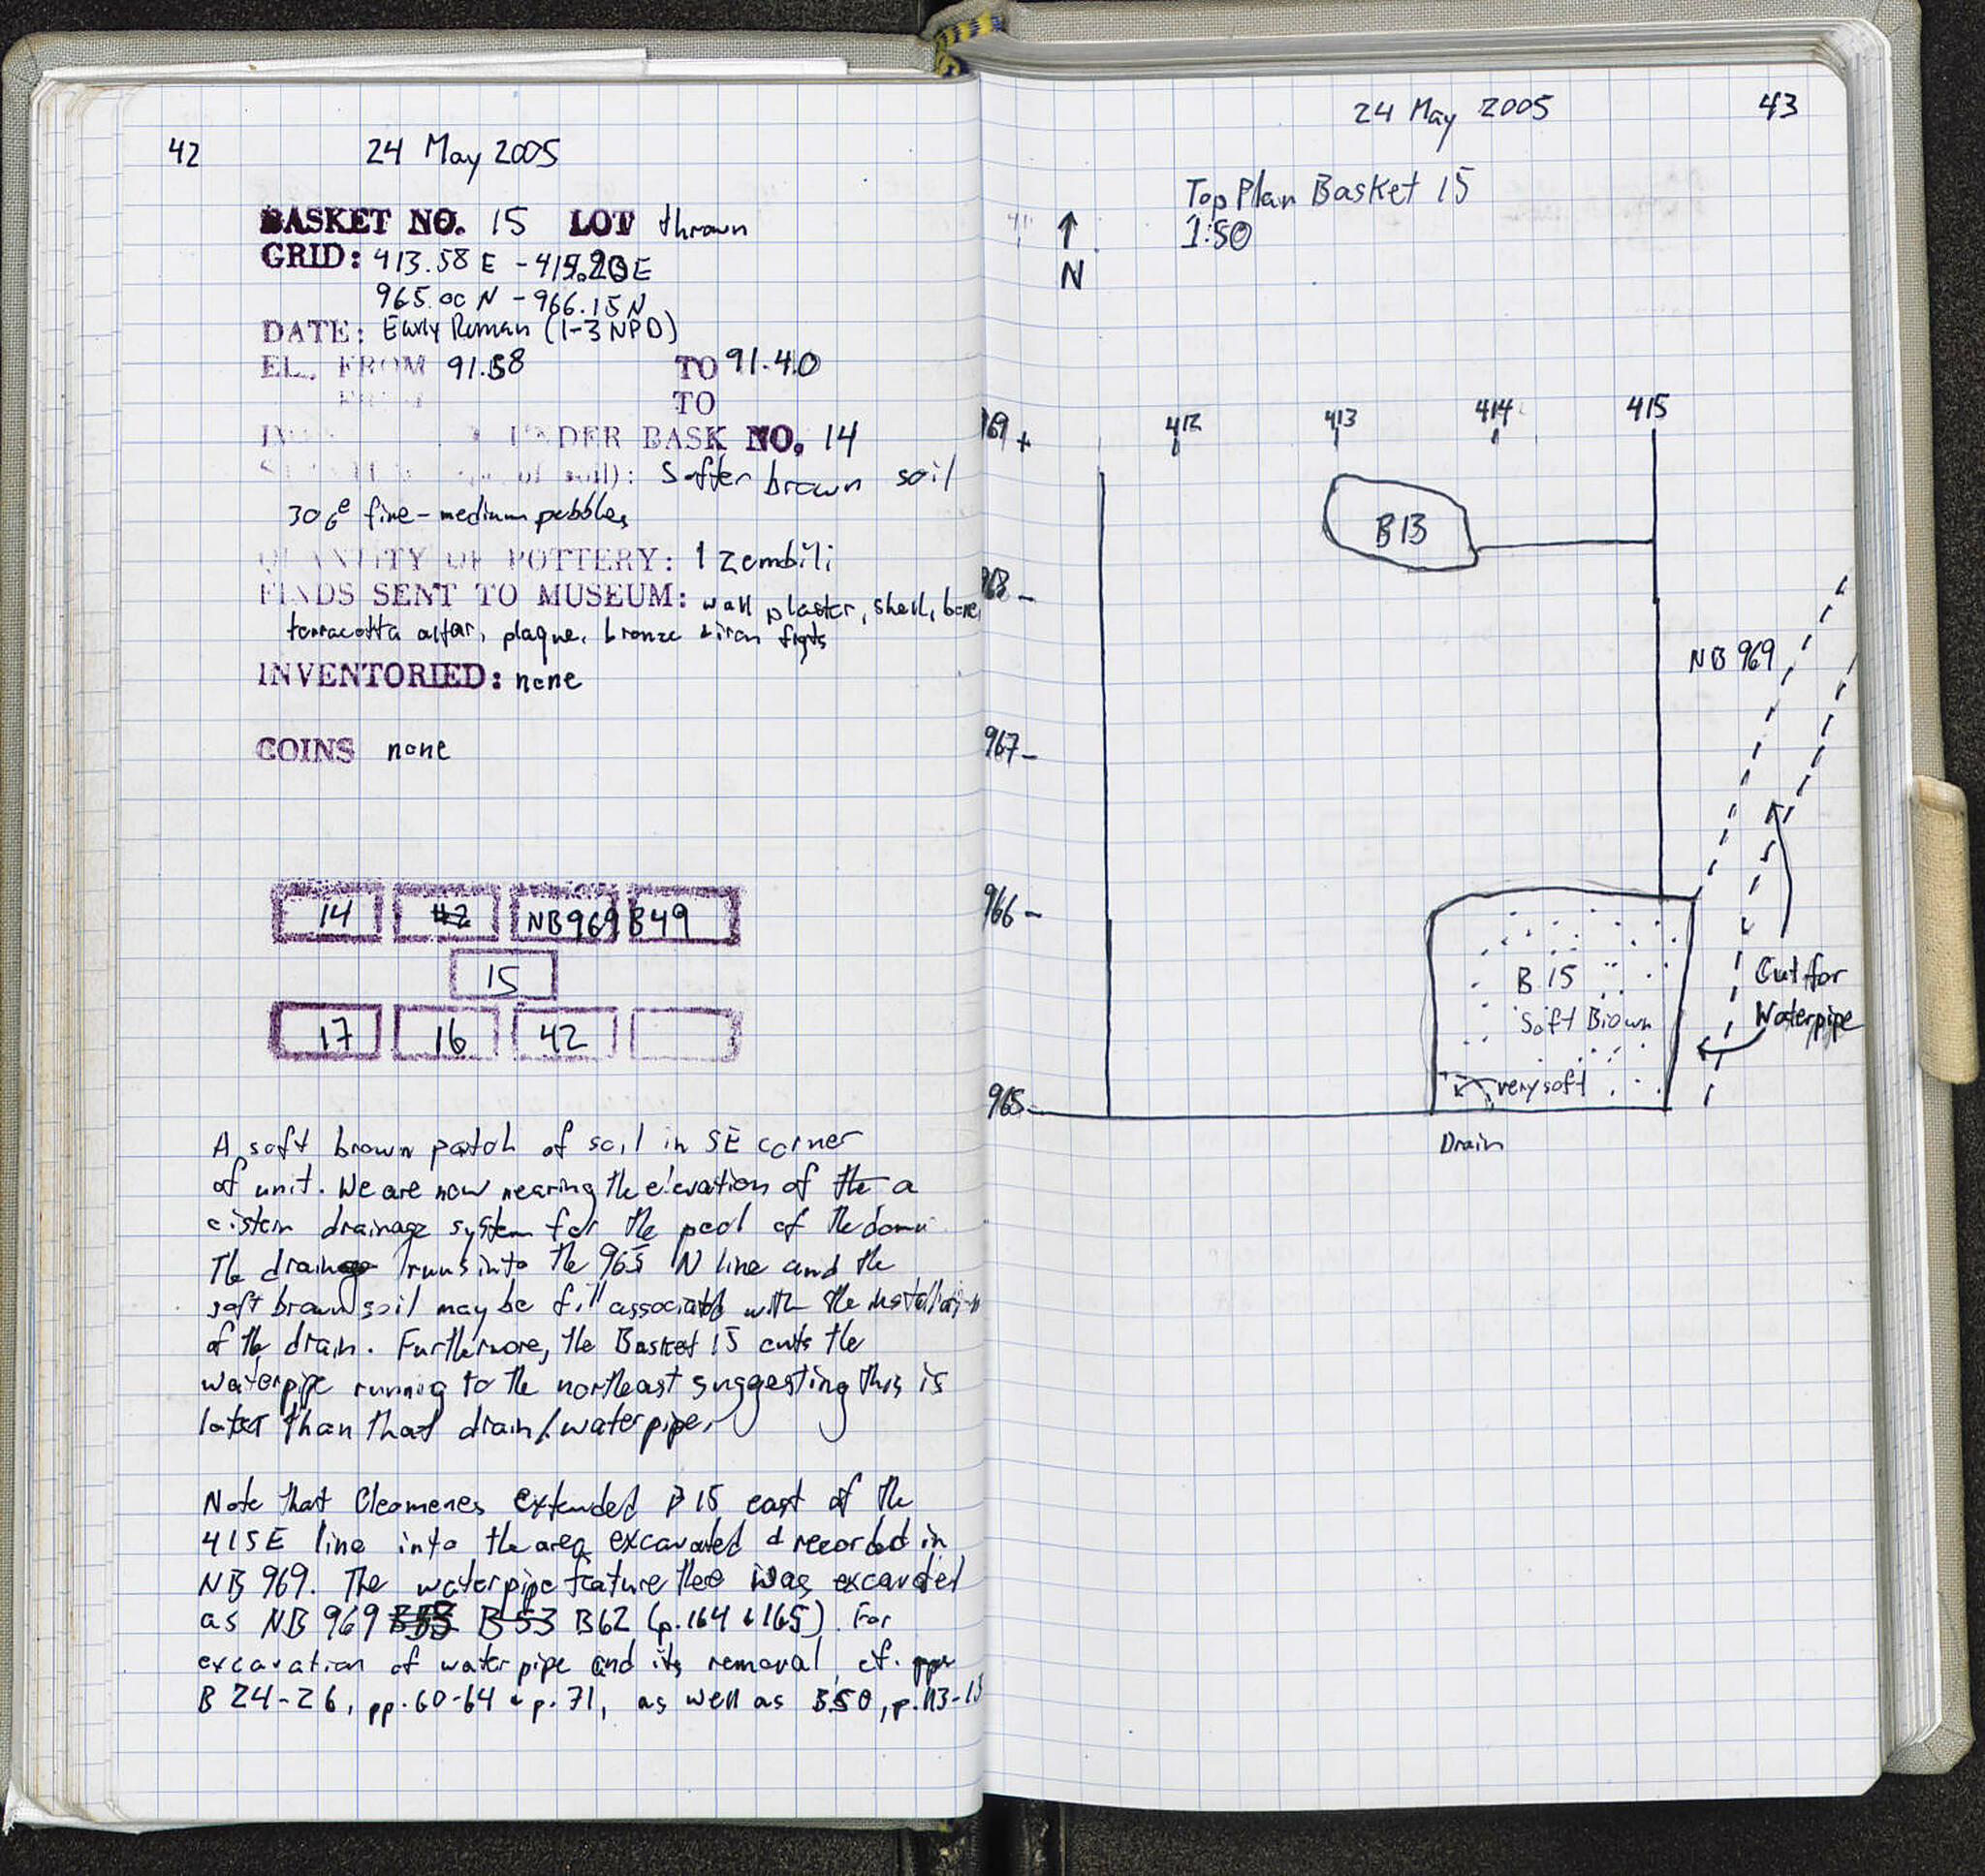 42
24 May 2005
BASKET NO. 15 LOT thrown
GRID: 413.58 E - 415.20 E
965.00 N - 966.15 N
DATE: Early Roman (1-3 NPD)
EL. FROM 91.58 TO 91.40
FROM TO
UNDER BASK NO. 14
of soil): Softer brown soil
30% fine-medium pebbles
QUANTITY OF POTTERY: 1 zembili
FINDS SENT TO MUSEUM: wall plaster, shell, bone,
terracotta altar, plaque, bronze & iron frgts
INVENTORIED: none
COINS none
14 NB969 B49
15
17 16 42
A soft brown patch of soil in SE corner
of unit. We are now nearing the elevation of the a
cistern drainage system for the pool of the
The drain runs into the 965 N line and the
soft brown soil may be fill associated with the installation
of the drain. Furthermore, the Basket 15 cuts the
waterpipe running to the northeast suggesting this is
later than that drain/waterpipe.
Note that Cleomenes extended B15 east of the
415E line into the area excavated & recorded in
NB 969. The waterpipe feature there was excavated
as NB 969 B53 B62 (p. 164 & 165). For
excavation of water pipe and its removal, cf.
B 24-26, pp. 60-64 & p. 71, as well as B50, p. 113-
24 May 2005
43
Top Plan Basket 15
1:50
N
412 413 414 415
969
B13
968
NB 969
967
966
B 15
Soft Brown
Cut for
Waterpipe
very soft
965
Drain